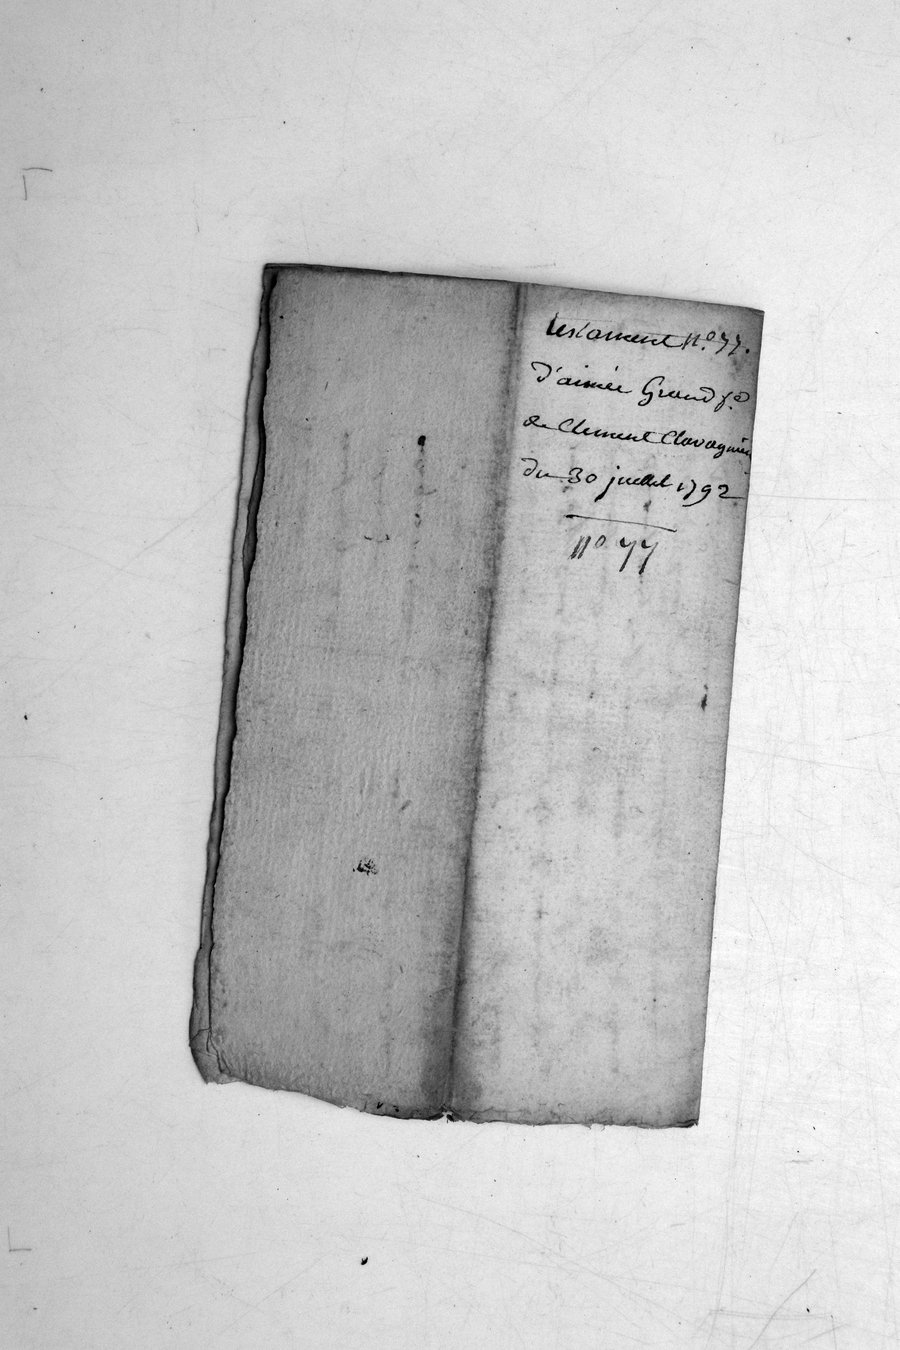 testament n.º 77.
d'aimée Grand f.e
de Clement Clavagnier
du 30 juillet 1792
nº 77